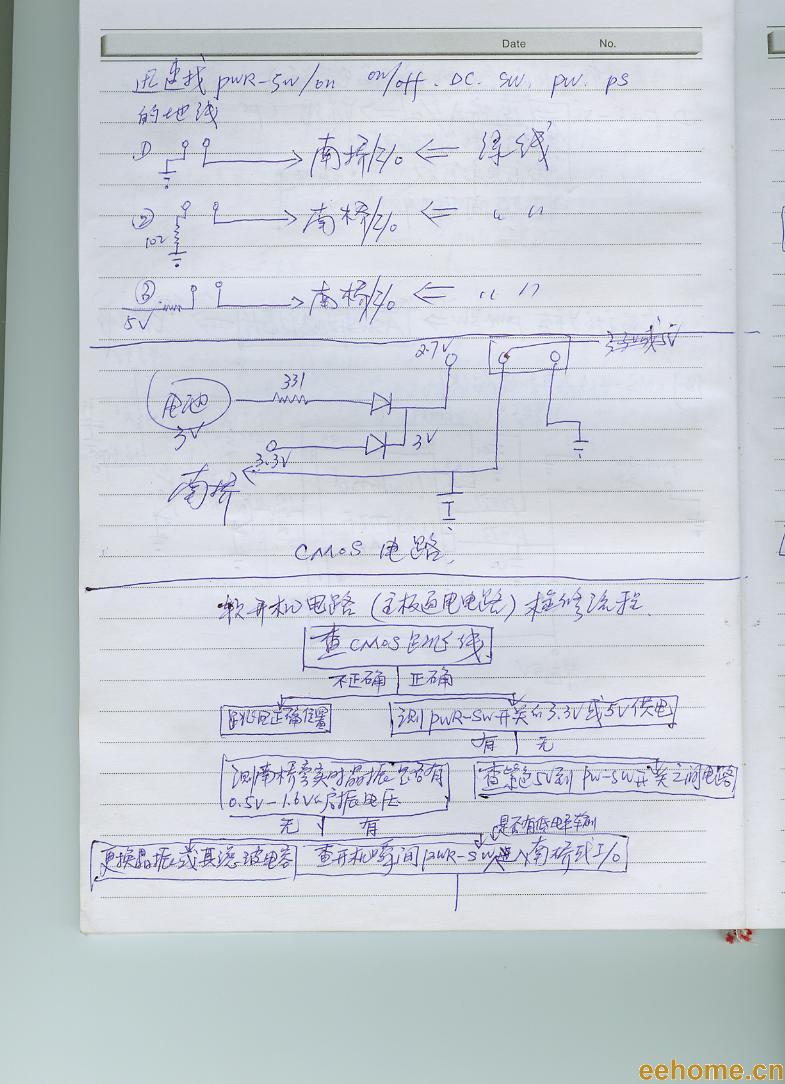 Date No.
迅速找 PWR-SW/on on/off. DC. SW. PW. PS
的地线
① 南桥/I/o ⇐ 绿线
② 南桥/I/o ⇐ 〃 〃
102
③ 南桥/I/o ⇐ 〃 〃
5V
2.7V 3.3V或5V
331
电池
3V 3V
3.3V
南桥
CMOS 电路.
软开机电路(主板通电电路)检修流程.
查CMOS跳线
不正确 正确
跳正确位置 测PWR-SW开关的3.3V或5V供电
有 无
测南桥旁实时晶振是否有 查紫色5V到PW-SW开关之间电路
0.5V-1.6V的启振电压
无 有 是否有低电平
更换晶振或其滤波电容 查开机瞬间PWR-SW进入南桥或I/o
eehome.cn